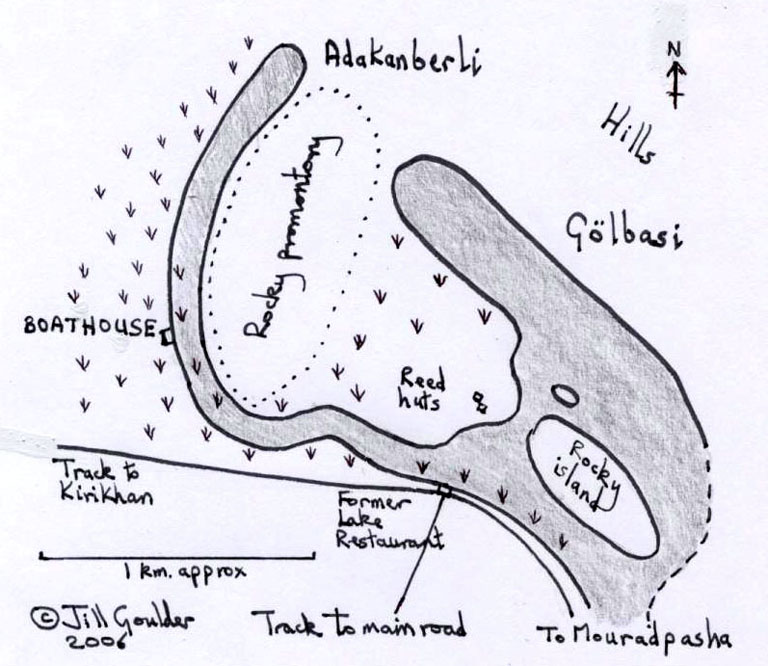 Adakanberli
N
Hills
Gölbasi
Rocky promontory
BOATHOUSE
Reed
huts
Rocky
island
Track to
Kirikhan
Former
Lake
Restaurant
1 km. approx
© Jill Goulder
2006
Track to main road
To Mouradpasha